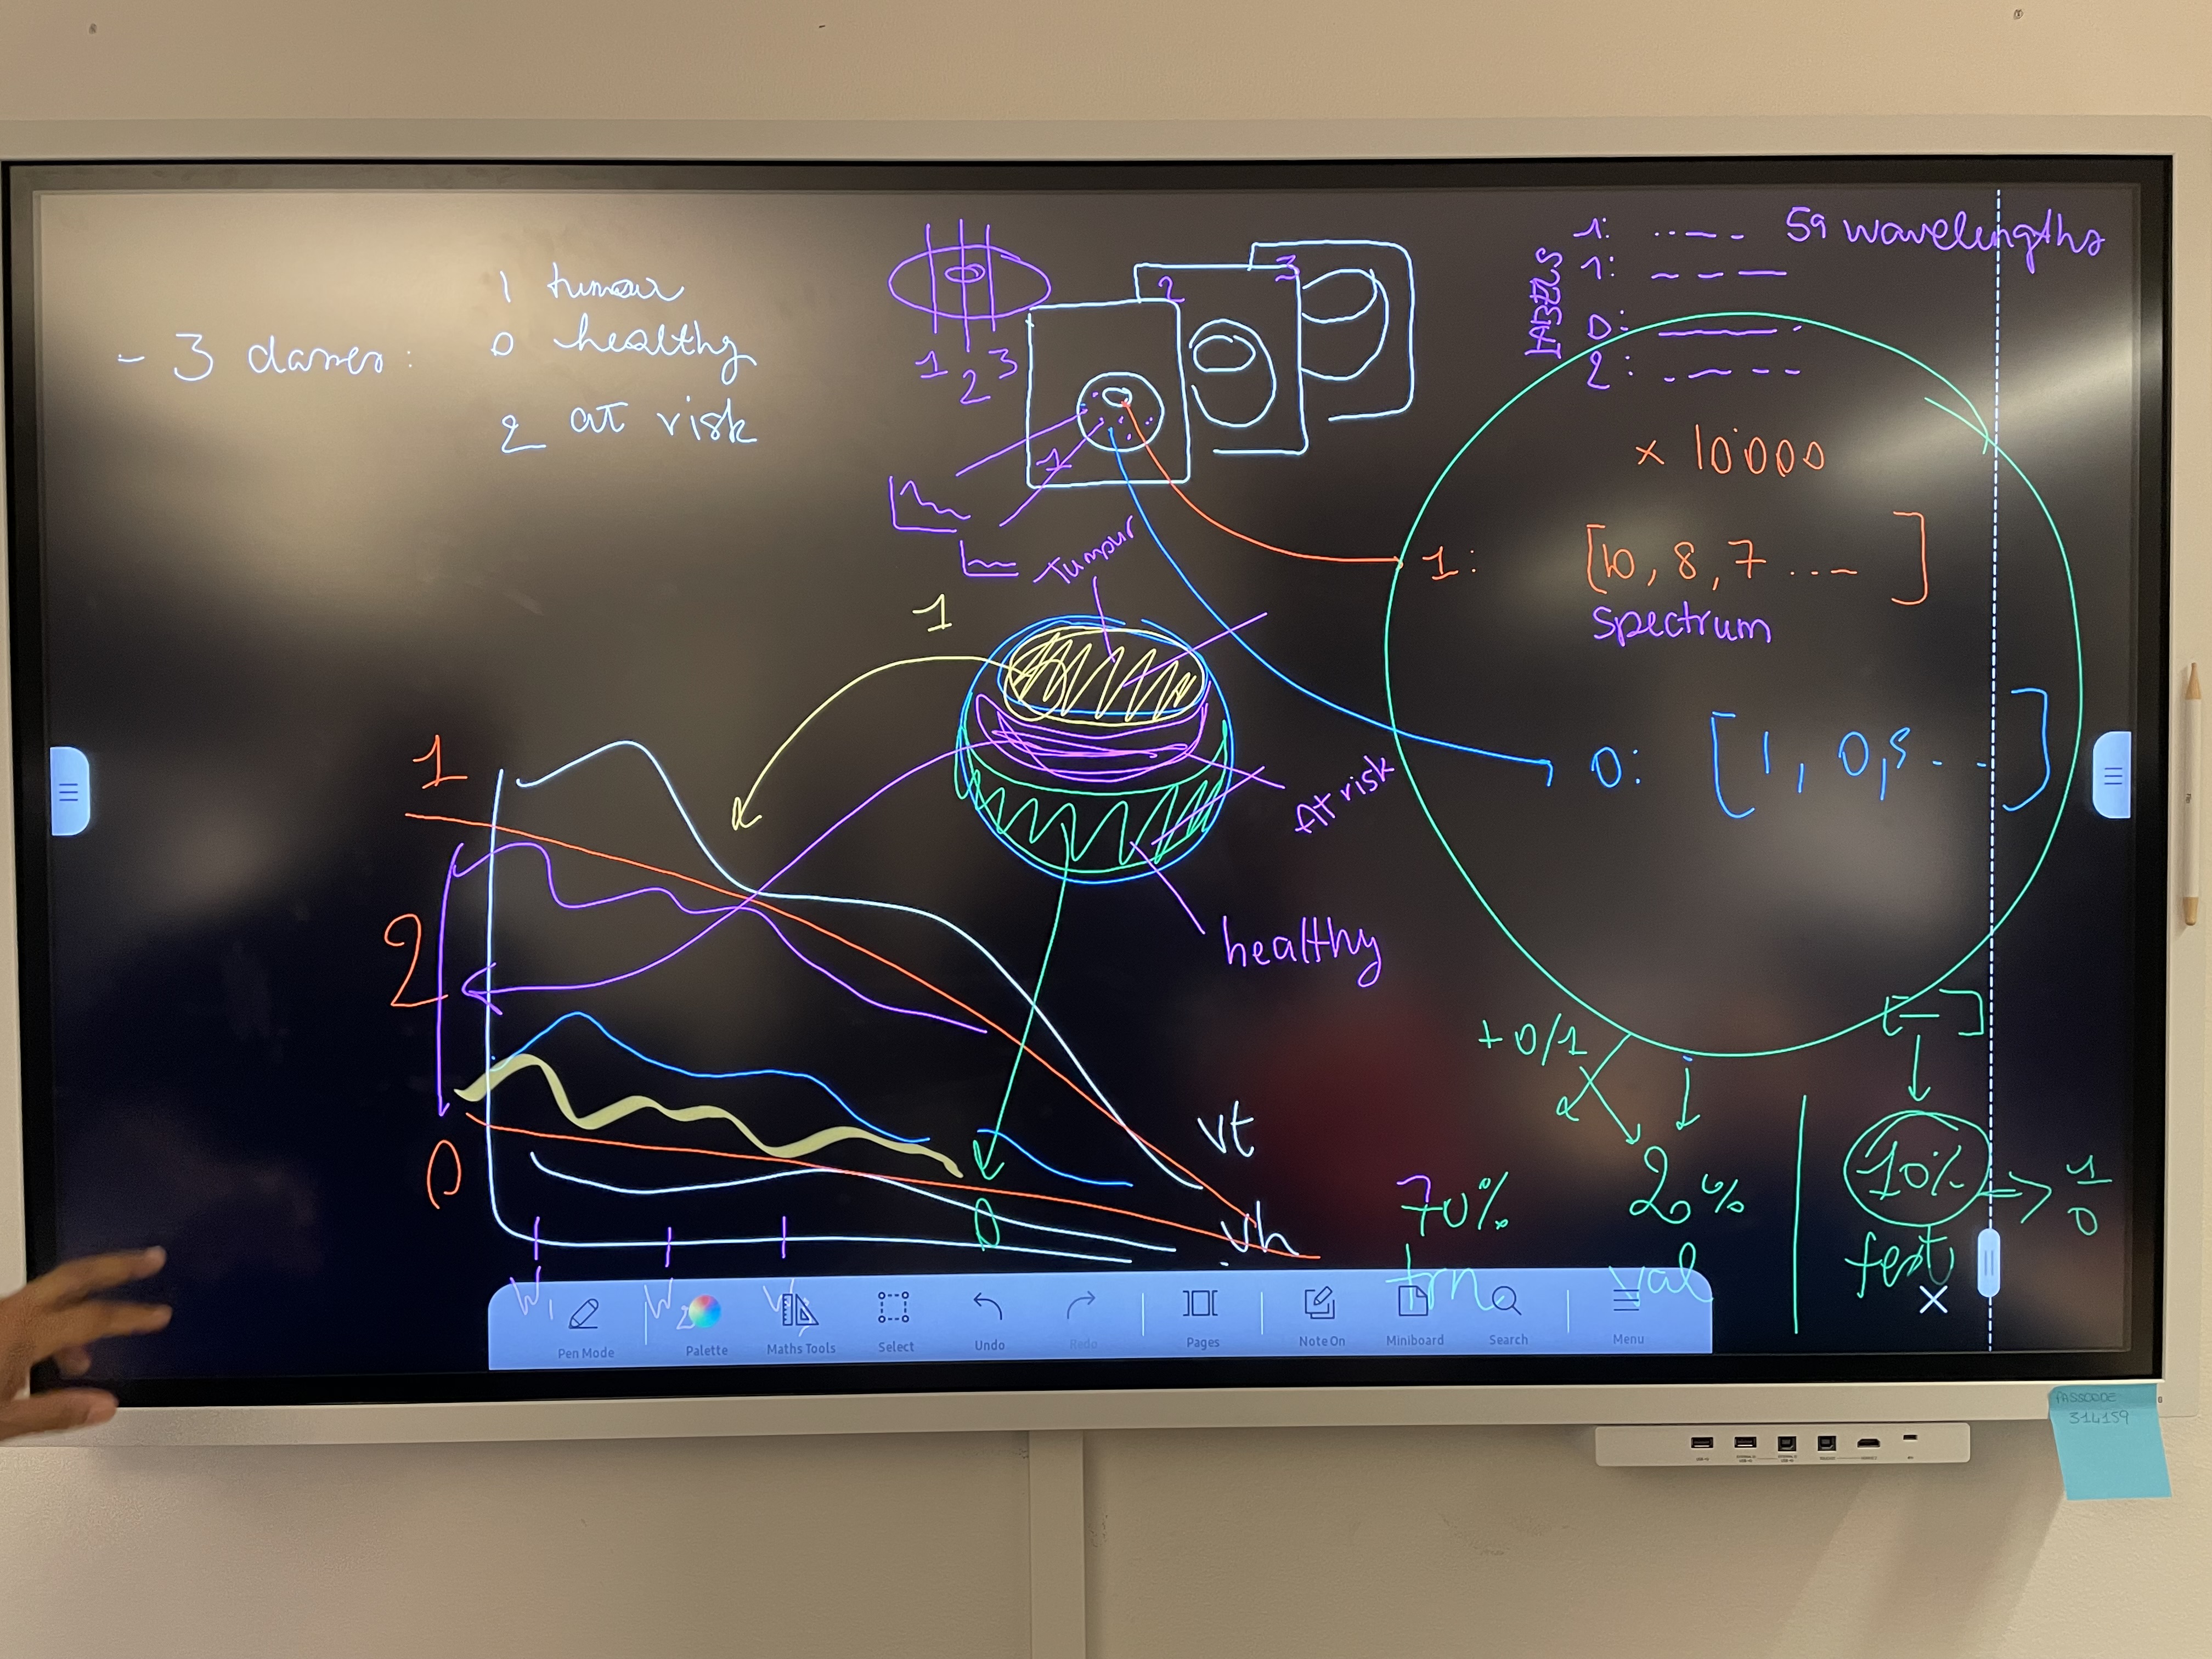 - 3 classes:
1 tumour
0 healthy
2 at risk
1 2 3
1
2
3
LABELS
1: 59 wavelengths
1:
0:
2:
x 10000
1: [10, 8, 7 ... ]
spectrum
0: [1, 0,5 ... ]
Tumour
At risk
healthy
1
1
2
0
0
vt
vh
W1
W2
W3
+ 0/1
[ ]
70%
trn
20%
val
10%
test
1
0
Pen Mode
Palette
Maths Tools
Select
Undo
Redo
Pages
Note On
Miniboard
Search
Menu
PASSCODE
314159